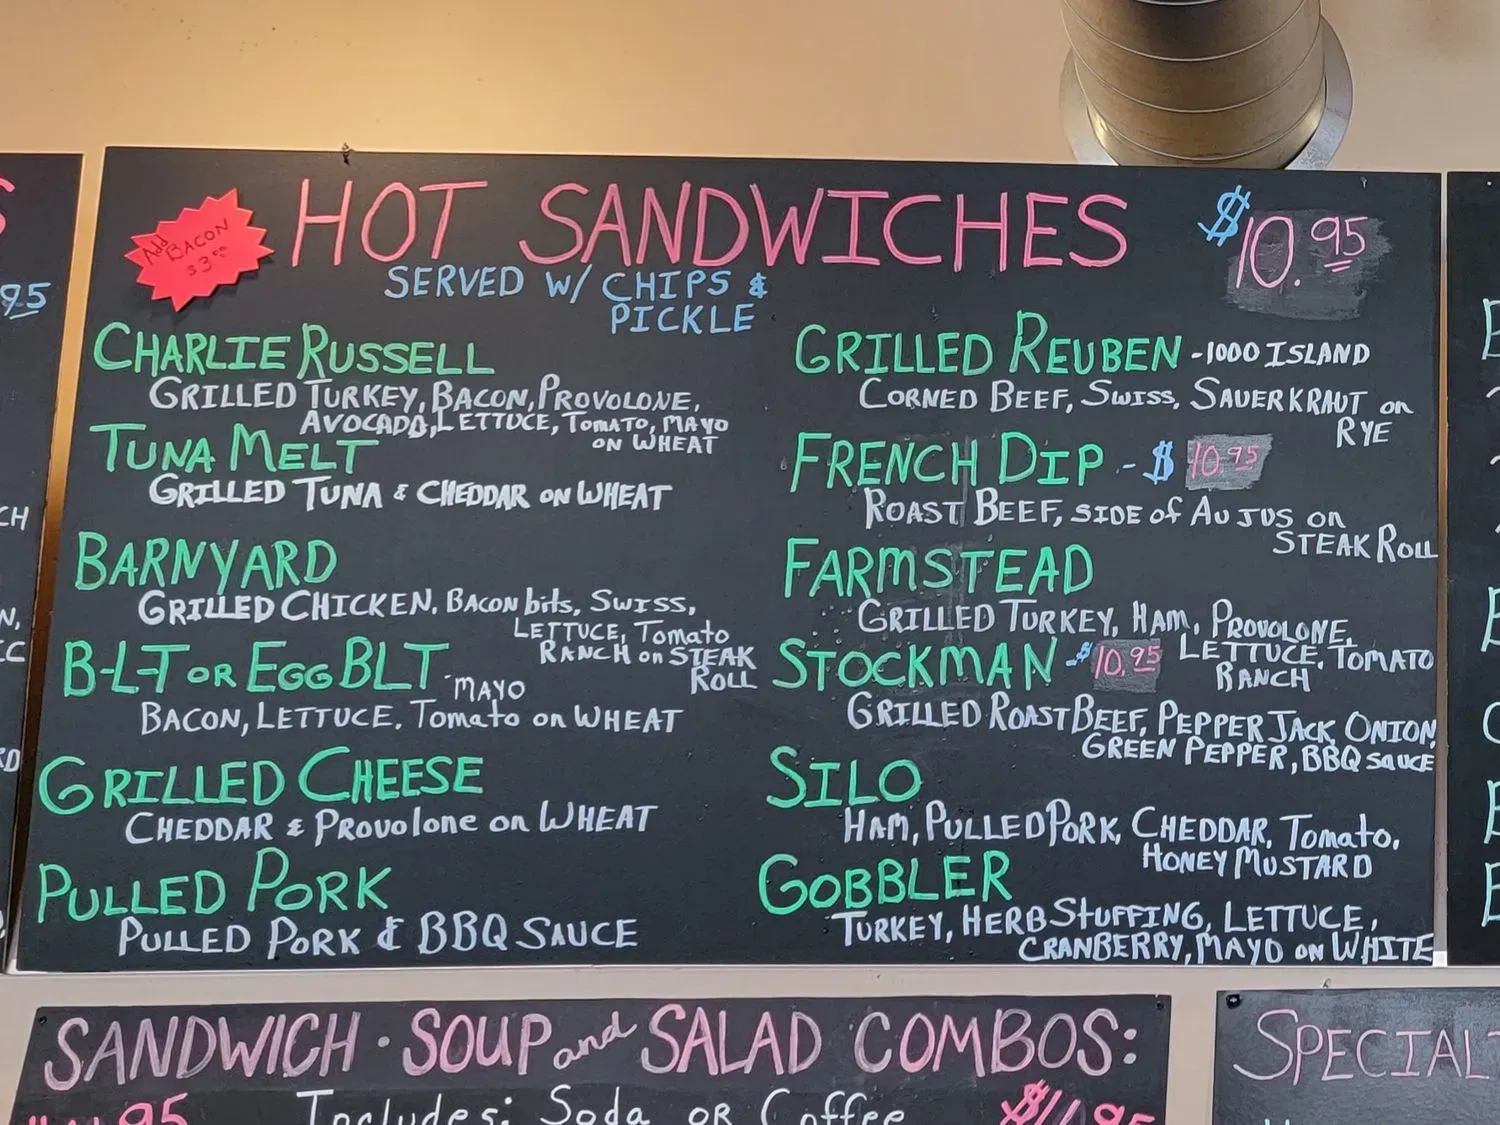 Add BACON
$3.00
HOT SANDWICHES
$10.95
SERVED W/ CHIPS &
PICKLE
CHARLIE RUSSELL
GRILLED TURKEY, BACON, PROVOLONE,
AVOCADO, LETTUCE, TOMATO, MAYO
ON WHEAT
TUNA MELT
GRILLED TUNA & CHEDDAR ON WHEAT
BARNYARD
GRILLED CHICKEN, BACON bits, SWISS,
LETTUCE, Tomato
RANCH on STEAK
ROLL
B-L-T OR EGG BLT - MAYO
BACON, LETTUCE, Tomato on WHEAT
GRILLED CHEESE
CHEDDAR & Provolone on WHEAT
PULLED PORK
PULLED PORK & BBQ SAUCE
GRILLED REUBEN - 1000 ISLAND
CORNED BEEF, SWISS, SAUERKRAUT on
RYE
FRENCH DIP - $10.95
ROAST BEEF, SIDE of AU JUS on
STEAK ROLL
FARMSTEAD
GRILLED TURKEY, HAM, PROVOLONE,
LETTUCE, TOMATO
RANCH
STOCKMAN - $10.95
GRILLED ROAST BEEF, PEPPER JACK, ONION,
GREEN PEPPER, BBQ sauce
SILO
HAM, PULLED PORK, CHEDDAR, Tomato,
HONEY MUSTARD
GOBBLER
TURKEY, HERB STUFFING, LETTUCE,
CRANBERRY, MAYO ON WHITE
SANDWICH · SOUP and SALAD COMBOS:
Includes: Soda OR Coffee
$11.95
SPECIAL